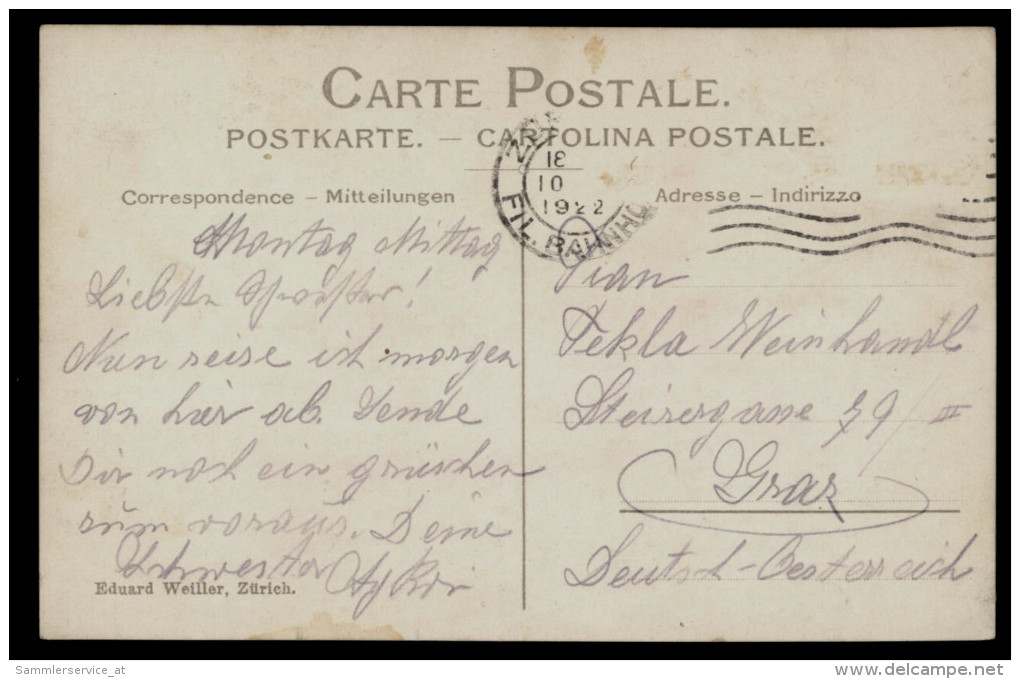 CARTE POSTALE.
POSTKARTE. — CARTOLINA POSTALE.
Correspondence – Mitteilungen
Adresse – Indirizzo
18
10
1922
FIL. BAHNHO
Montag Mittag
Liebste Schwester!
Nun reise ich morgen
von hier ab. Sende
Dir noch ein grüschen
zum voraus. Deine
Schwester
Eduard Weiller, Zürich.
Frau
Tekla Weinhandl
Steirergasse 79/III
Graz
Deutsch-Oesterreich
Sammlerservice_at
www.delcampe.net